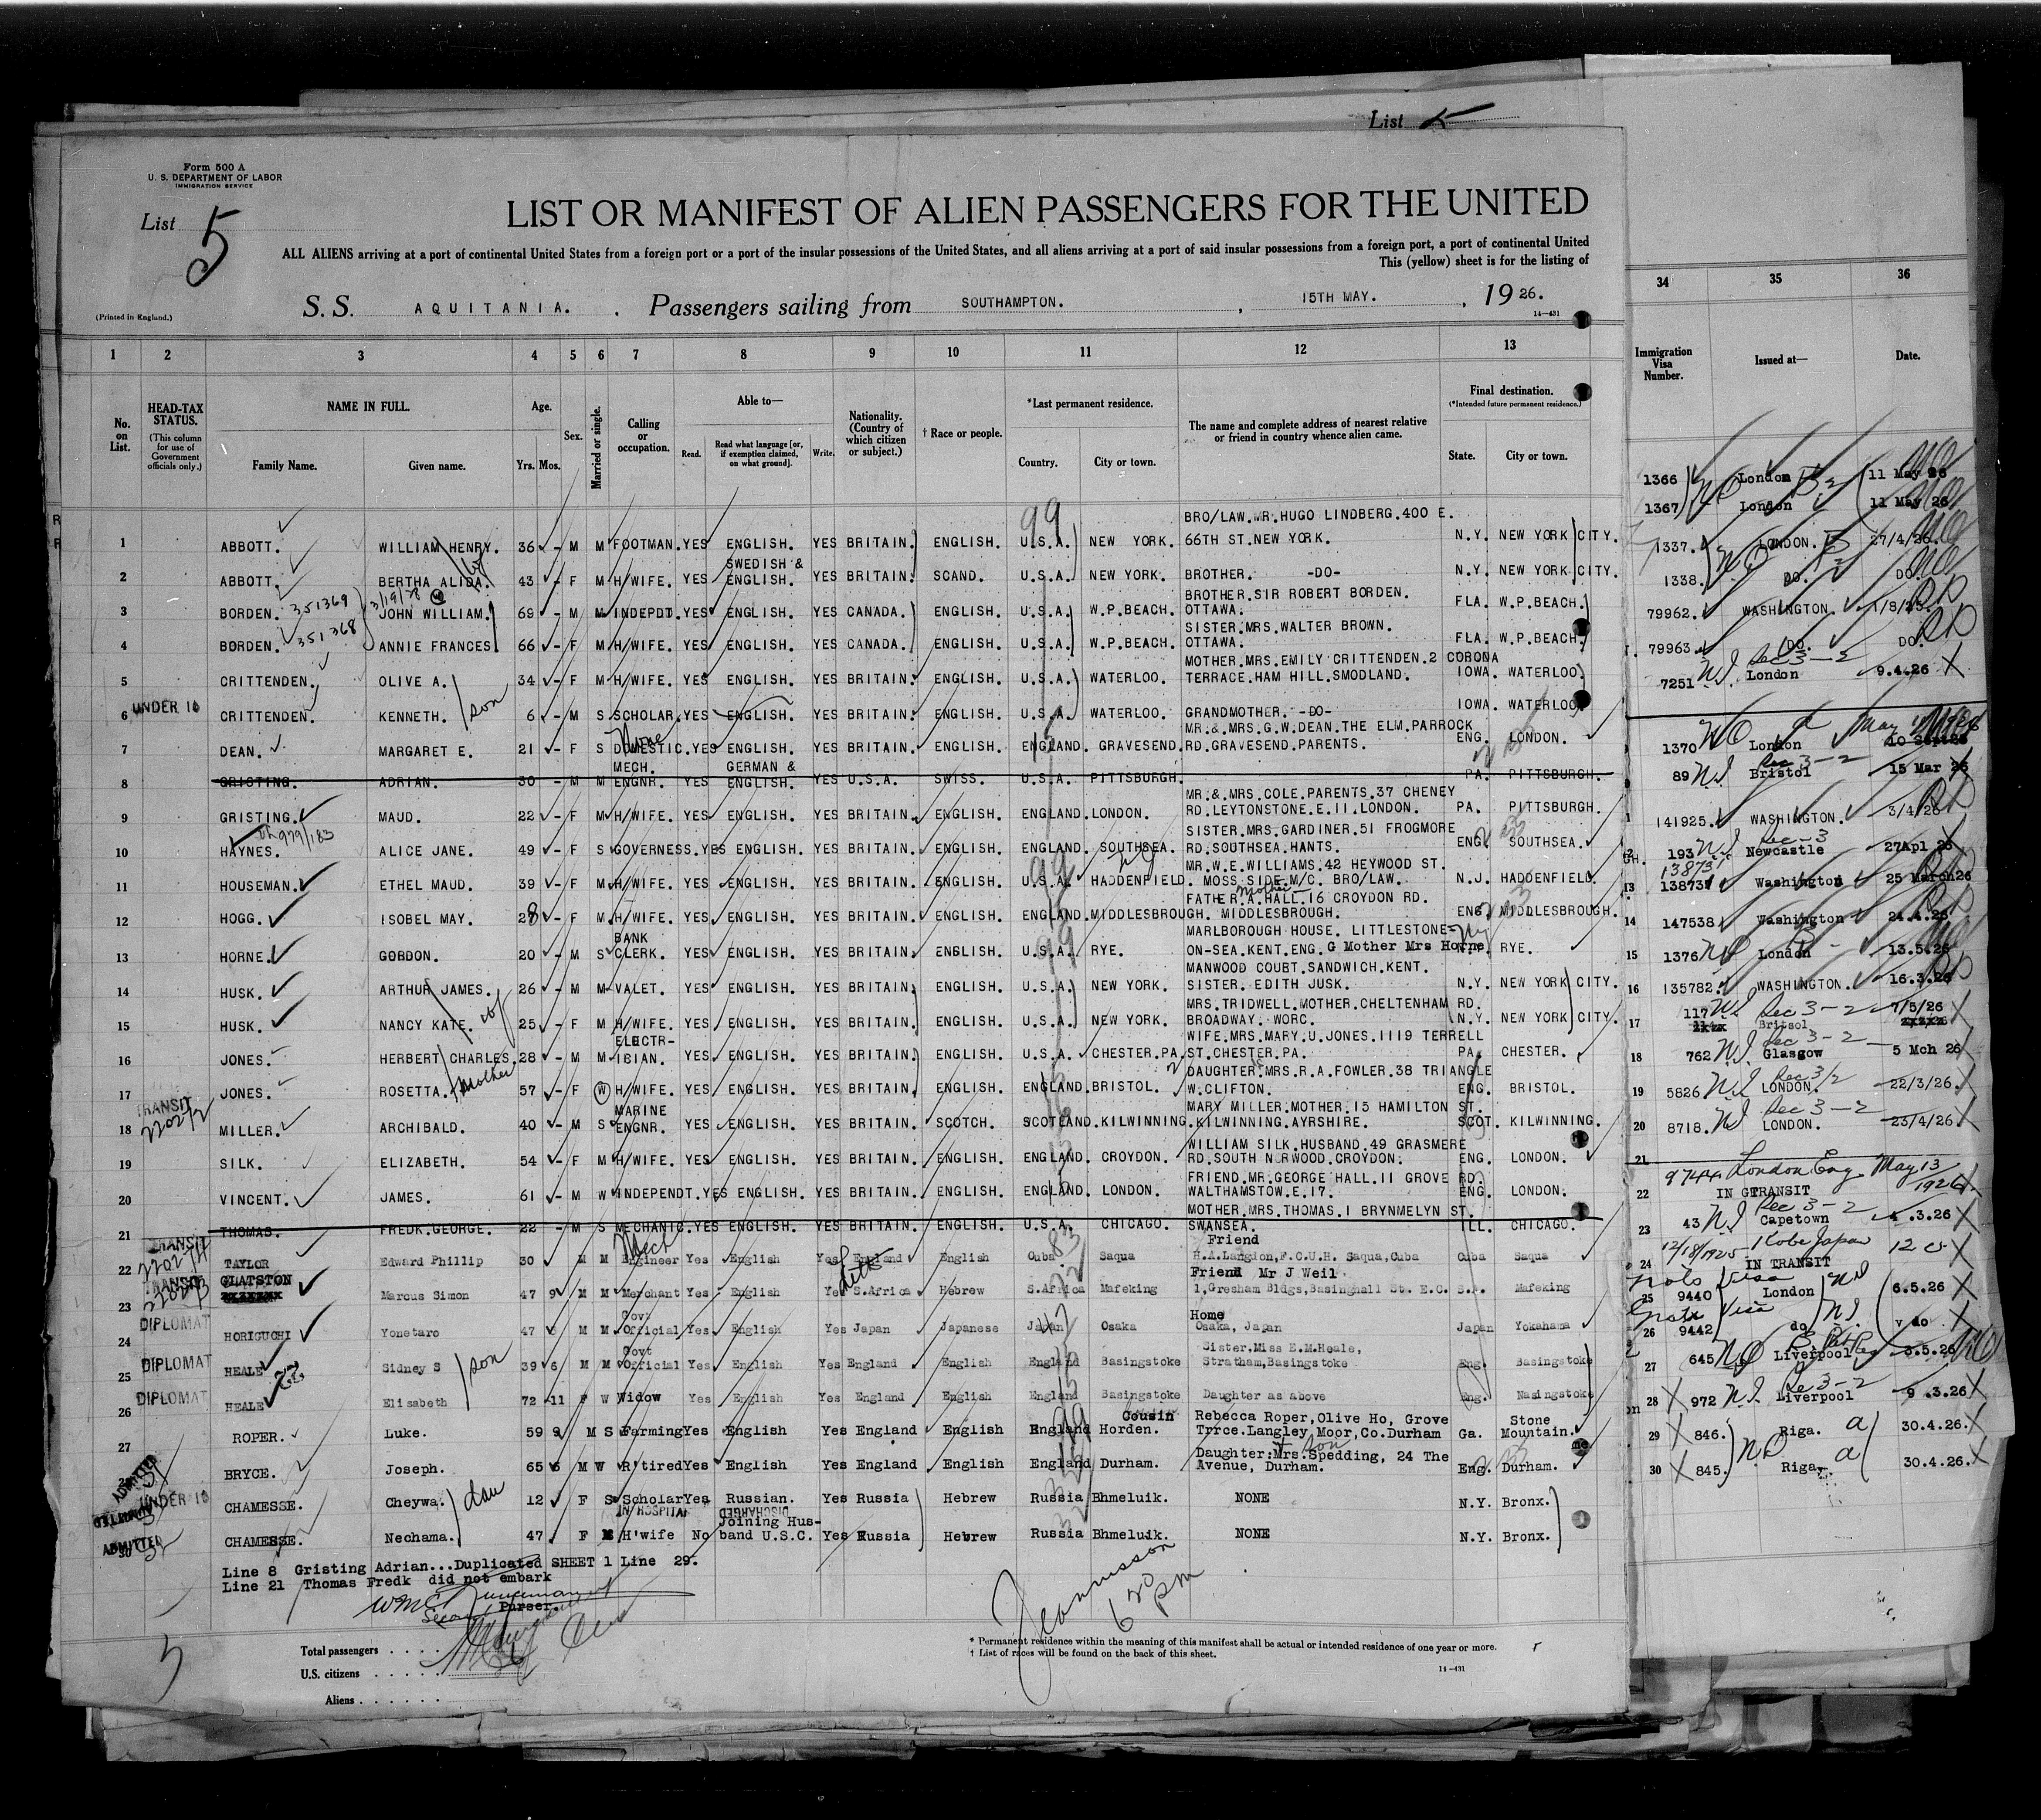 List
Form 500 A
U. S. DEPARTMENT OF LABOR
IMMIGRATION SERVICE
List 5
LIST OR MANIFEST OF ALIEN PASSENGERS FOR THE UNITED
ALL ALIENS arriving at a port of continental United States from a foreign port or a port of the insular possessions of the United States, and all aliens arriving at a port of said insular possessions from a foreign port, a port of continental United
This (yellow) sheet is for the listing of
S. S. AQUITANIA. Passengers sailing from SOUTHAMPTON. , 15TH MAY. , 19 26.
(Printed in England.) 14-431
1 2 3 4 5 6 7 8 9 10 11 12 13 34 35 36
No. on List. HEAD-TAX STATUS. (This column for use of Government officials only.) NAME IN FULL. Family Name. Given name. Age. Yrs. Mos. Sex. Married or single. Calling or occupation. Able to— Read. Read what language [or, if exemption claimed, on what ground]. Write. Nationality. (Country of which citizen or subject.) † Race or people. *Last permanent residence. Country. City or town. The name and complete address of nearest relative or friend in country whence alien came. Final destination. (*Intended future permanent residence.) State. City or town. Immigration Visa Number. Issued at— Date.
1366 London 11 May 26
1367 London 11 May 26
99 BRO/LAW.MR.HUGO LINDBERG.400 E.
1 ABBOTT. WILLIAM HENRY. 36 - M M FOOTMAN. YES ENGLISH. YES BRITAIN. ENGLISH. U.S.A. NEW YORK. 66TH ST.NEW YORK. N.Y. NEW YORK CITY. 1337. LONDON. 27/4/26.
SWEDISH &
2 ABBOTT. BERTHA ALIDA. 43 - F M H/WIFE. YES ENGLISH. YES BRITAIN. SCAND. U.S.A. NEW YORK. BROTHER. -DO- N.Y. NEW YORK CITY. 1338. DO. DO.
351369 3/19/28 BROTHER.SIR ROBERT BORDEN.
3 BORDEN. JOHN WILLIAM. 69 - M M INDEPDT. YES ENGLISH. YES CANADA. ENGLISH. U.S.A. W.P.BEACH. OTTAWA. FLA. W.P.BEACH. 79962. WASHINGTON.
351368 SISTER.MRS.WALTER BROWN.
4 BORDEN. ANNIE FRANCES. 66 - F M H/WIFE. YES ENGLISH. YES CANADA. ENGLISH. U.S.A. W.P.BEACH. OTTAWA. FLA. W.P.BEACH. 79963. DO. DO.
MOTHER.MRS.EMILY CRITTENDEN.2 CORONA
5 CRITTENDEN. OLIVE A. 34 - F M H/WIFE. YES ENGLISH. YES BRITAIN. ENGLISH. U.S.A. WATERLOO. TERRACE.HAM HILL.SMODLAND. IOWA. WATERLOO. 7251 London 9.4.26
UNDER 16
6 CRITTENDEN. KENNETH. son 6 - M S SCHOLAR. YES ENGLISH. YES BRITAIN. ENGLISH. U.S.A. WATERLOO. GRANDMOTHER. -DO- IOWA. WATERLOO.
None MR.& MRS.G.W.DEAN.THE ELM.PARROCK
7 DEAN. MARGARET E. 21 - F S DOMESTIC. YES ENGLISH. YES BRITAIN. ENGLISH. ENGLAND. GRAVESEND. RD.GRAVESEND.PARENTS. ENG. LONDON. 1370 London
MECH. GERMAN &
8 GRISTING. ADRIAN. 30 - M M ENGNR. YES ENGLISH. YES U.S.A. SWISS. U.S.A. PITTSBURGH. PA. PITTSBURGH. 89 Bristol 15 Mar 26
MR.& MRS.COLE.PARENTS.37 CHENEY
9 GRISTING. MAUD. 22 - F M H/WIFE. YES ENGLISH. YES BRITAIN. ENGLISH. ENGLAND. LONDON. RD.LEYTONSTONE.E.11.LONDON. PA. PITTSBURGH. 141925. WASHINGTON. 3/4/26
979/183 SISTER.MRS.GARDINER.51 FROGMORE
10 HAYNES. ALICE JANE. 49 - F S GOVERNESS. YES ENGLISH. YES BRITAIN. ENGLISH. ENGLAND. SOUTHSEA. RD.SOUTHSEA.HANTS. ENG. SOUTHSEA. 193 Newcastle 27Apl 26
99 MR.W.E.WILLIAMS.42 HEYWOOD ST.
11 HOUSEMAN. ETHEL MAUD. 39 - F M H/WIFE. YES ENGLISH. YES BRITAIN. ENGLISH. U.S.A. HADDENFIELD. MOSS SIDE M/C. BRO/LAW. N.J. HADDENFIELD. 138731 Washington 25 March26
Mother FATHER.A.HALL.16 CROYDON RD.
12 HOGG. ISOBEL MAY. 28 - F M H/WIFE. YES ENGLISH. YES BRITAIN. ENGLISH. ENGLAND. MIDDLESBROUGH. MIDDLESBROUGH. ENG. MIDDLESBROUGH. 14 147538 Washington 24.4.26
BANK MARLBOROUGH HOUSE. LITTLESTONE-
13 HORNE. GORDON. 20 - M S CLERK. YES ENGLISH. YES BRITAIN. ENGLISH. U.S.A. RYE. ON-SEA.KENT.ENG. G Mother Mrs Horne. N.Y. RYE. 15 1376 London 13.5.26
MANWOOD COUBT.SANDWICH.KENT.
14 HUSK. ARTHUR JAMES. 26 - M M VALET. YES ENGLISH. YES BRITAIN. ENGLISH. U.S.A. NEW YORK. SISTER. EDITH JUSK. N.Y. NEW YORK CITY. 16 135782. WASHINGTON. 16.3.26
MRS.TRIDWELL.MOTHER.CHELTENHAM RD.
15 HUSK. NANCY KATE. wf 25 - F M H/WIFE. YES ENGLISH. YES BRITAIN. ENGLISH. U.S.A. NEW YORK. BROADWAY. WORC. N.Y. NEW YORK CITY. 17 117 Britsol 7/5/26
ELECTR- WIFE.MRS.MARY.U.JONES.1119 TERRELL
16 JONES. HERBERT CHARLES. 28 - M M ICIAN. YES ENGLISH. YES BRITAIN. ENGLISH. U.S.A. CHESTER.PA. ST.CHESTER.PA. PA. CHESTER. 18 762 Glasgow 5 Mch 26
DAUGHTER.MRS.R.A.FOWLER.38 TRIANGLE
17 JONES. ROSETTA. Mother 57 - F W H/WIFE. YES ENGLISH. YES BRITAIN. ENGLISH. ENGLAND. BRISTOL. W.CLIFTON. ENG. BRISTOL. 19 5826 LONDON. 22/3/26.
TRANSIT MARINE MARY MILLER.MOTHER.15 HAMILTON ST.
18 MILLER. ARCHIBALD. 40 - M S ENGNR. YES ENGLISH. YES BRITAIN. SCOTCH. SCOTLAND. KILWINNING. KILWINNING.AYRSHIRE. SCOT. KILWINNING. 20 8718. LONDON. 23/4/26
WILLIAM SILK.HUSBAND.49 GRASMERE
19 SILK. ELIZABETH. 54 - F M H/WIFE. YES ENGLISH. YES BRITAIN. ENGLISH. ENGLAND. CROYDON. RD.SOUTH NORWOOD.CROYDON. ENG. LONDON. 21
FRIEND.MR.GEORGE HALL.11 GROVE RD.
20 VINCENT. JAMES. 61 - M W INDEPENDT. YES ENGLISH. YES BRITAIN. ENGLISH. ENGLAND. LONDON. WALTHAMSTOW.E.17. ENG. LONDON. 22 9744 London Eng May 13 1926 IN TRANSIT
MOTHER.MRS.THOMAS.1 BRYNMELYN ST.
21 THOMAS. FREDK.GEORGE. 22 - M S MECHANIC. YES ENGLISH. YES BRITAIN. ENGLISH. U.S.A. CHICAGO. SWANSEA. ILL. CHICAGO. 23 43 Capetown .3.26
TRANSIT Mech Friend
22 TAYLOR Edward Phillip 30 M M Engineer Yes English Yes England English Cuba Saqua H.A.Langdon,F.C.U.H. Saqua,Cuba Cuba Saqua 24 12/18/1925 Kobe Japan IN TRANSIT
TRANSIT GLATSTON Friend Mr J Weil
23 Marcus Simon 47 9 M M Merchant Yes English Yes S.Africa Hebrew S.Africa Mafeking 1,Gresham Bldgs,Basinghall St. E.C. S.A. Mafeking 25 9440 London 6.5.26
DIPLOMAT Govt Home
24 HORIGUCHI Yonetaro 47 M M Official Yes English Yes Japan Japanese Japan Osaka Osaka, Japan Japan Yokahama 26 9442 do do
DIPLOMAT Govt Sister.Miss E.M.Heale,
25 HEALE Sidney S son 39 6 M M Official Yes English Yes England English England Basingstoke Stratham,Basingstoke Eng. Basingstoke 27 645 Liverpool .5.26
DIPLOMAT
26 HEALE Elisabeth 72 11 F W Widow Yes English Yes England English England Basingstoke Daughter as above Eng. Nasingstoke 28 972 Liverpool 9 .3.26
Cousin Rebecca Roper,Olive Ho, Grove Stone
27 ROPER. Luke. 59 9 M S Farming Yes English Yes England English England Horden. Trrce.Langley Moor,Co.Durham Ga. Mountain. 29 846. Riga. 30.4.26.
Daughter:Mrs.Spedding, 24 The
BRYCE. Joseph. 65 6 M W R'tired Yes English Yes England English England Durham. Avenue, Durham. Eng. Durham. 30 845. Riga. 30.4.26.
ADMITTED UNDER 16
CHAMESSE. Cheywa. dau 12 F S Scholar Yes Russian. Yes Russia Hebrew Russia Bhmeluik. NONE N.Y. Bronx.
IN HOSPITAL DISCHARGED
Joining Hus-
ADMITTED
30 CHAMESSE. Nechama. 47 F M H'wife No band U.S.C. Yes Russia Hebrew Russia Bhmeluik. NONE N.Y. Bronx.
Line 8 Gristing Adrian...Duplicated SHEET 1 Line 29.
Line 21 Thomas Fredk did not embark
Purser.
Jeannisson
6 20 pm
Total passengers . . . .
U.S. citizens . . . . .
Aliens . . . . . .
* Permanent residence within the meaning of this manifest shall be actual or intended residence of one year or more.
† List of races will be found on the back of this sheet.
14-431